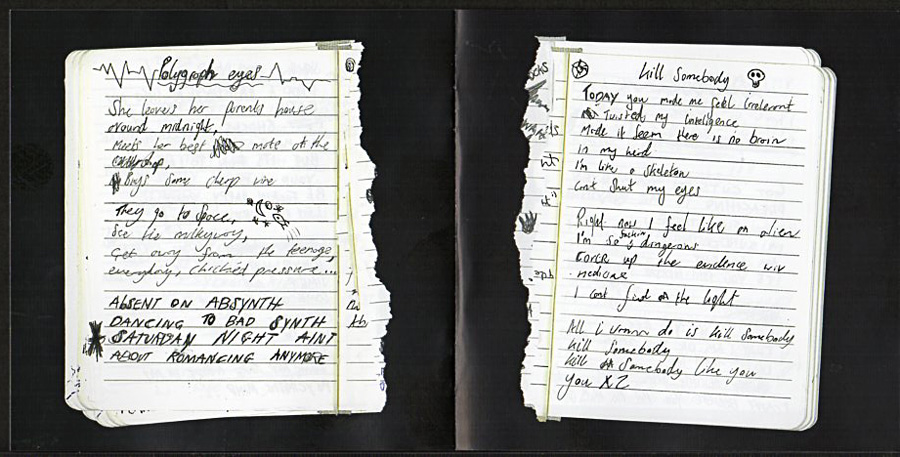 Polygraph eyes
She leaves her parents house
around midnight,
Meets her best mate at the
shop,
Buys some cheap wine
They go to space,
See the milkyway,
Get away from the teenage,
everyday, clichéd pressure...
ABSENT ON ABSYNTH
DANCING TO BAD SYNTH
SATURDAY NIGHT AINT
ABOUT ROMANCING ANYMORE
kill Somebody
TODAY you made me feel irrelevant
Twisted my intelligence
Made it seem there is no brain
in my head
I'm like a skeleton
cant shut my eyes
Right now I feel like an alien
I'm so fuckin dangerous
cover up the evidence wiv
medicine
I cant find the light
All i wanna do is kill somebody
kill Somebody
kill Somebody like you
you X2